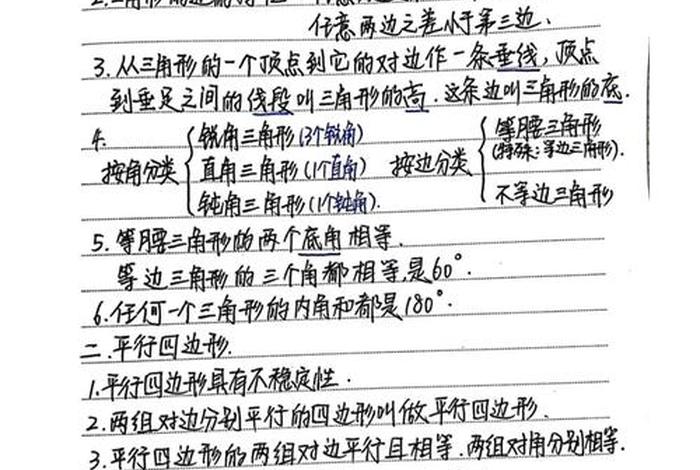 任意两边之差小于第三边、
3.从三角形的一个顶点到它的对边作一条垂线，顶点
到垂足之间的线段叫三角形的高.这条边叫三角形的底.
4.
按角分类
锐角三角形(3个锐角)
直角三角形(1个直角)
钝角三角形(1个钝角).
按边分类
等腰三角形
(特殊:等边三角形).
不等边三角形
5.等腰三角形的两个底角相等.
等边三角形的三个角都相等,是60°.
6.任何一个三角形的内角和都是180°.
二.平行四边形.
1.平行四边形具有不稳定性.
2.两组对边分别平行的四边形叫做平行四边形.
3.平行四边形的两组对边平行且相等.两组对角分别相等.